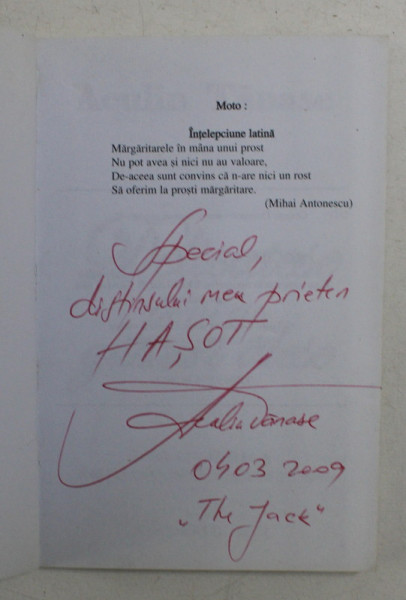 Moto :
Înțelepciune latină
Mărgăritarele în mâna unui prost
Nu pot avea și nici nu au valoare,
De-aceea sunt convins că n-are nici un rost
Să oferim la proști mărgăritare.
(Mihai Antonescu)
Special,
distinsului meu prieten
HAȘOTI
Acaliu Tănase
04 03 2009
„The Jack"